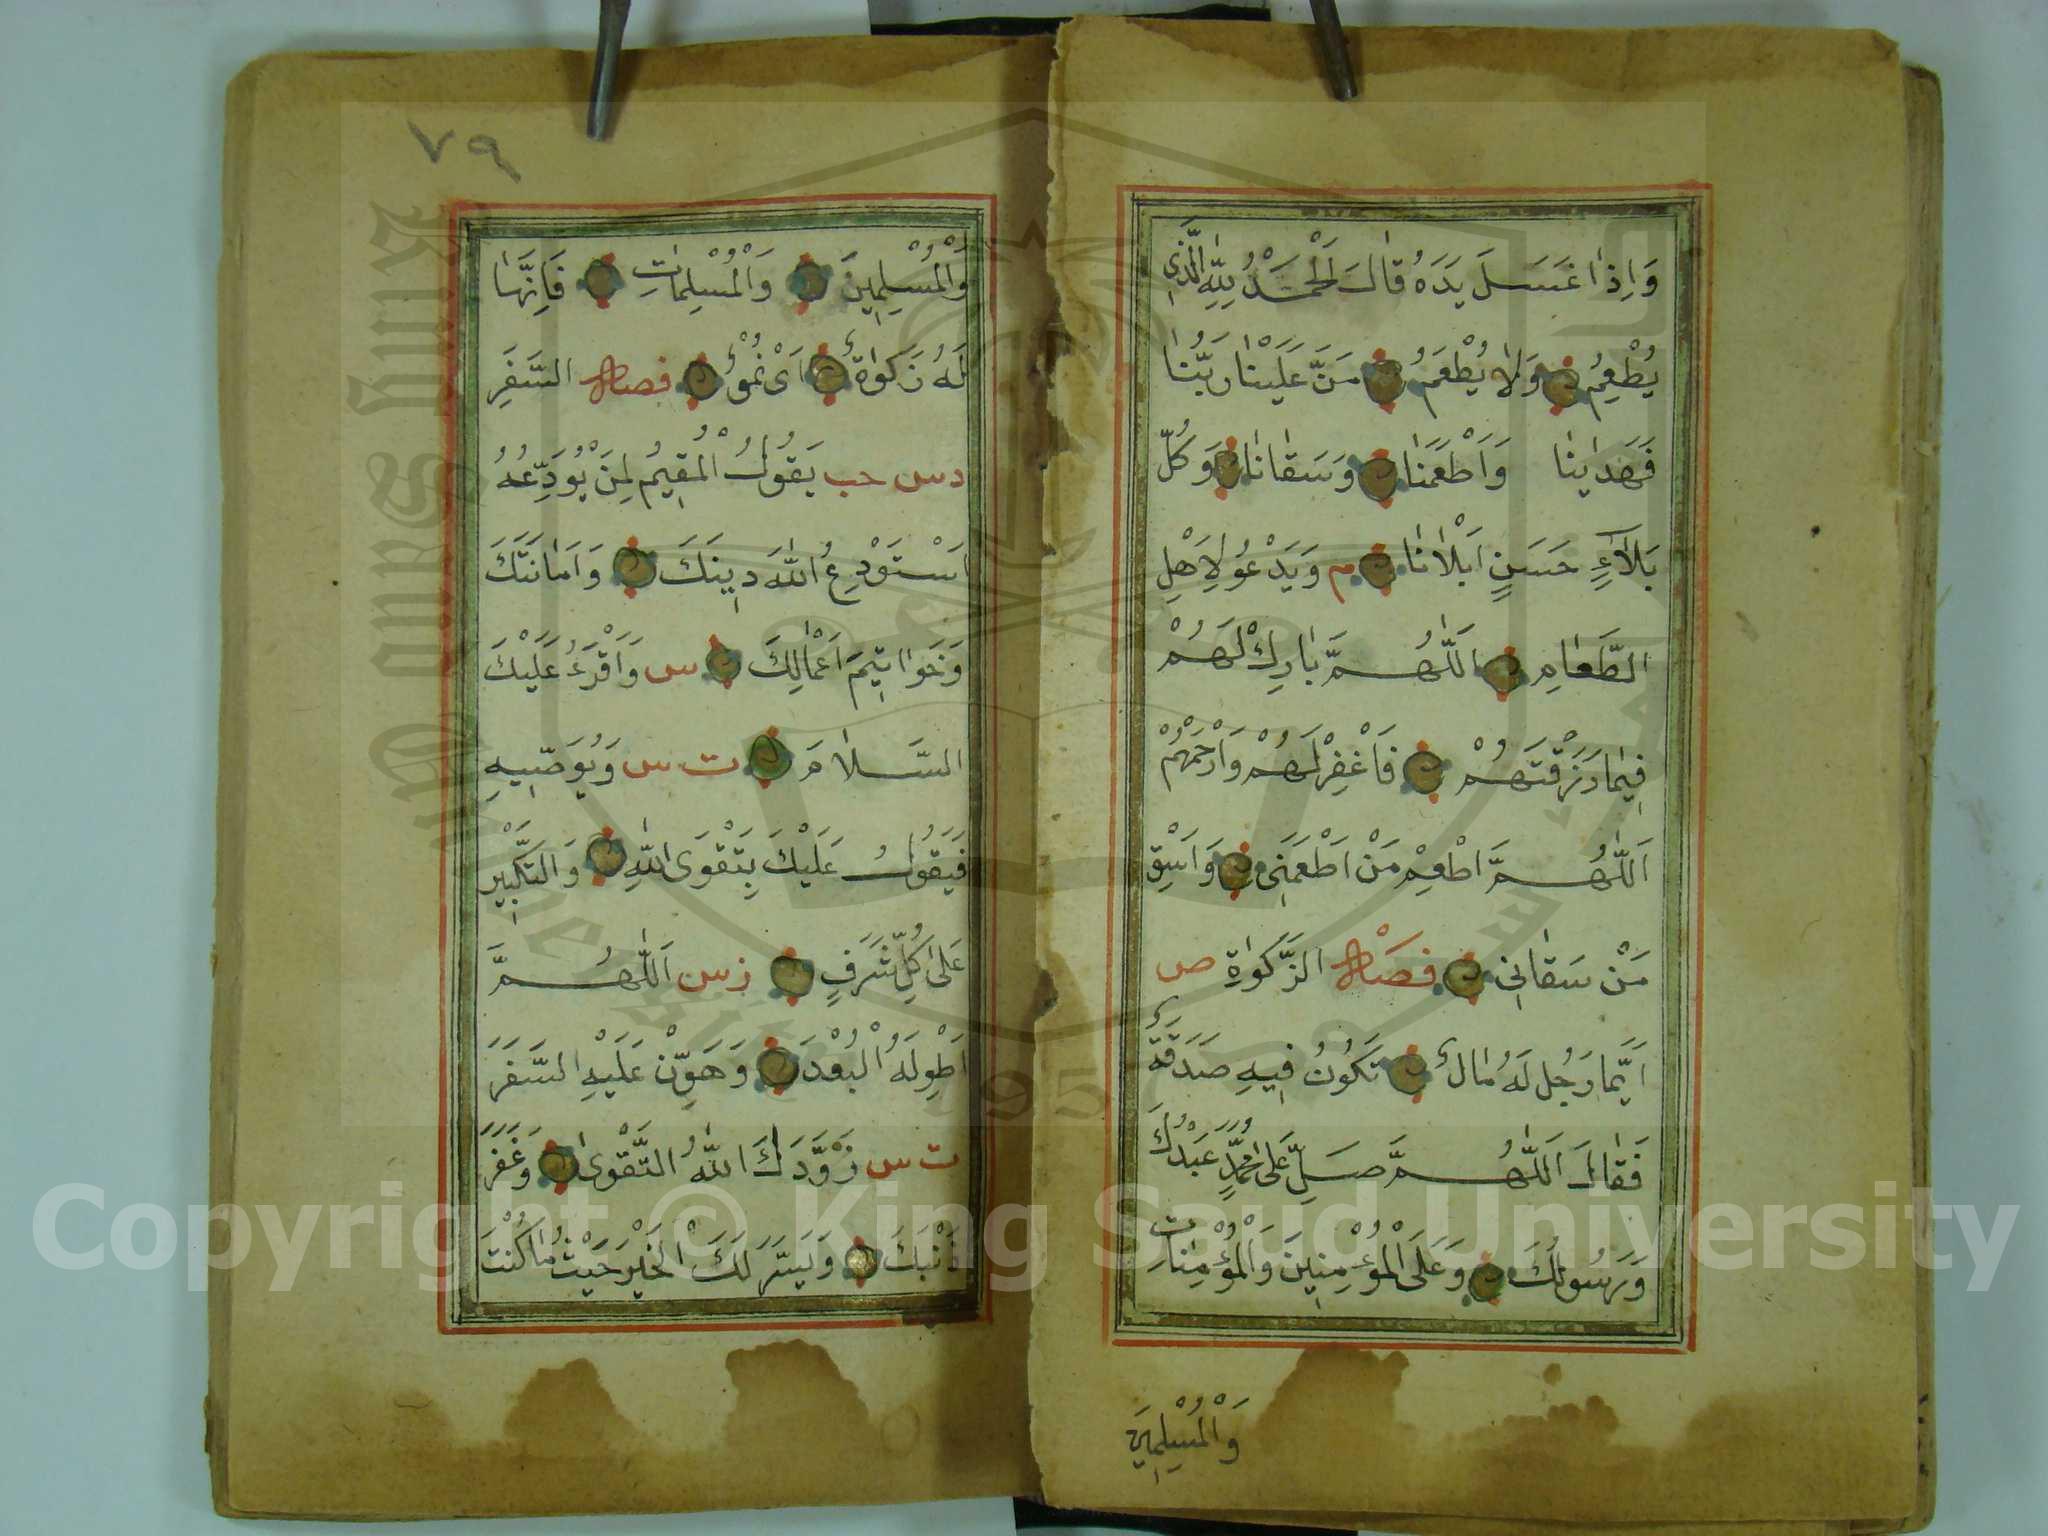 وَاِذَا غَسَلَ يَدَهُ قَالَ اَلْحَمْدُ لِلّٰهِ الَّذِي
يُطْعِمُ وَلَا يُطْعَمُ مَنَّ عَلَيْنَا رَبُّنَا
فَهَدَانَا وَاَطْعَمَنَا وَسَقَانَا وَكُلَّ
بَلَاۤءٍ حَسَنٍ اَبْلَانَا م وَيَدْعُو لِاَهْلِ
الطَّعَامِ اَللّٰهُمَّ بَارِكْ لَهُمْ
فِيمَا رَزَقْتَهُمْ فَاغْفِرْ لَهُمْ وَارْحَمْهُمْ
اَللّٰهُمَّ اَطْعِمْ مَنْ اَطْعَمَنِي وَاَسْقِ
مَنْ سَقَانِي فَصْلُ الزَّكٰوةِ ص
اَيُّمَا رَجُلٍ لَهُ مَالٌ تَكُونُ فِيهِ صَدَقَةٌ
فَقَالَ اَللّٰهُمَّ صَلِّ عَلٰى مُحَمَّدٍ عَبْدِكَ
وَرَسُولِكَ وَعَلَى الْمُؤْمِنِينَ وَالْمُؤْمِنَاتِ
وَالْمُسْلِمِينَ
٧٩
وَالْمُسْلِمِينَ وَالْمُسْلِمَاتِ فَاِنَّهَا
لَهُ زَكٰوةٌ اَيْ نُمُوٌّ فصل السَّفَرِ
د س حب يَقُولُ الْمُقِيمُ لِمَنْ يُوَدِّعُهُ
اَسْتَوْدِعُ اللّٰهَ دِينَكَ وَاَمَانَتَكَ
وَخَوَاتِيمَ اَعْمَالِكَ س وَاَقْرَءُ عَلَيْكَ
السَّلَامَ ت س وَيُوَصِّيهِ
فَيَقُولُ عَلَيْكَ بِتَقْوَى اللّٰهِ وَالتَّكْبِيرِ
عَلٰى كُلِّ شَرَفٍ ز س اَللّٰهُمَّ
اَطْوِ لَهُ الْبُعْدَ وَهَوِّنْ عَلَيْهِ السَّفَرَ
ت س زَوَّدَكَ اللّٰهُ التَّقْوٰى وَغَفَرَ
ذَنْبَكَ وَيَسَّرَ لَكَ الْخَيْرَ حَيْثُ مَا كُنْتَ
Copyright © King Saud University